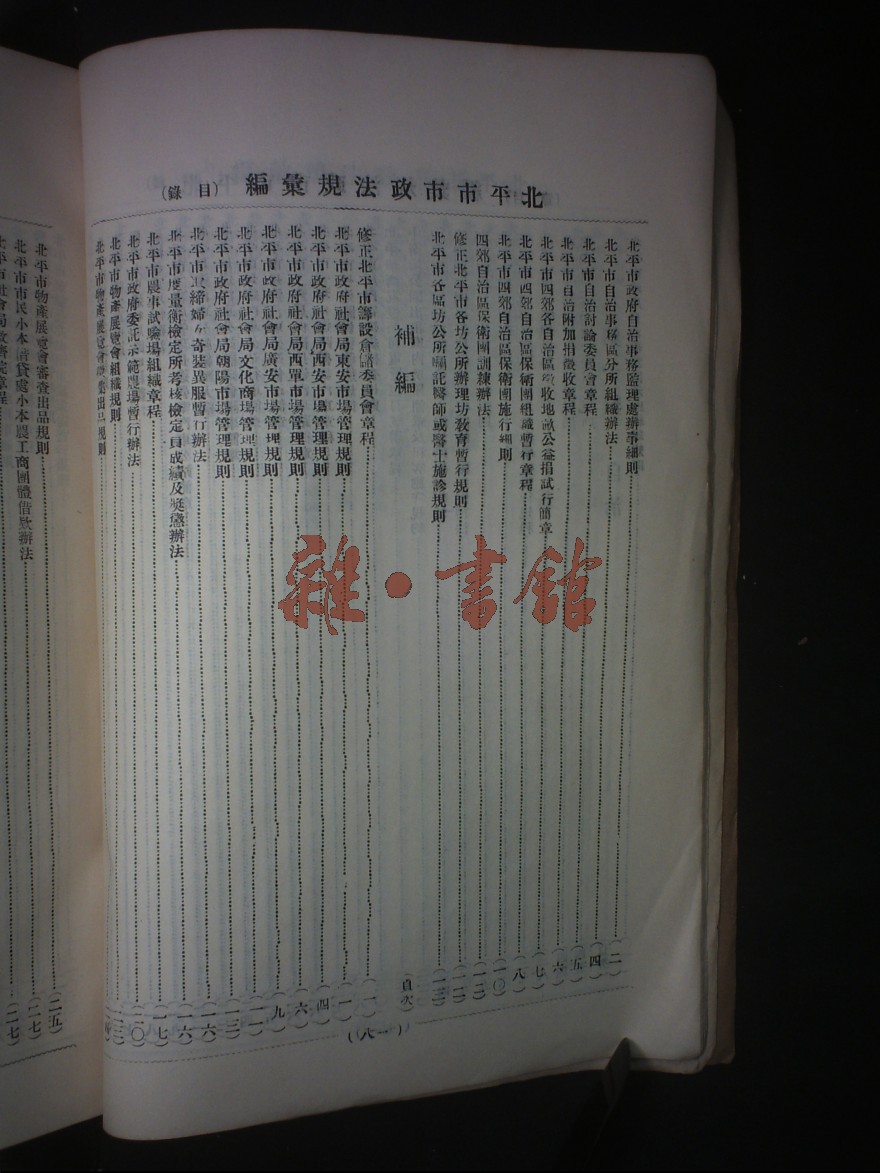 北平市市政法規彙編（目錄）
北平市政府自治事務監理處辦事細則（二）
北平市自治事務區分所組織辦法（四）
北平市自治討論委員會章程（五）
北平市自治附加捐徵收章程（六）
北平市四郊各自治區徵收地畝公益捐試行簡章（七）
北平市四郊自治區保衛團組織暫行章程（八）
北平市四郊自治區保衛團施行細則（一〇）
四郊自治區保衛團訓練辦法
修正北平市各坊公所辦理坊教育暫行規則
北平市各區坊公所囑託醫師或醫士施診規則
補編
（頁次）
修正北平市籌設倉儲委員會章程（一）
北平市政府社會局東安市場管理規則（一）
北平市政府社會局西安市場管理規則（四）
北平市政府社會局西單市場管理規則（六）
北平市政府社會局廣安市場管理規則（九）
北平市政府社會局文化商場管理規則（一一）
北平市政府社會局朝陽市場管理規則（一三）
北平市取締婦女奇裝異服暫行辦法（一六）
北平市度量衡檢定所考核檢定員成績及獎懲辦法（一六）
北平市農事試驗場組織章程（一七）
北平市政府委託示範農場暫行辦法（二〇）
北平市物產展覽會組織規則
北平市物產展覽會徵集出品規則
（一八）
北平市物產展覽會審查出品規則（二五）
北平市市民小本借貸處小本農工商團體借款辦法（二七）
北平市社會局救濟院章程（二七）
雜·書館